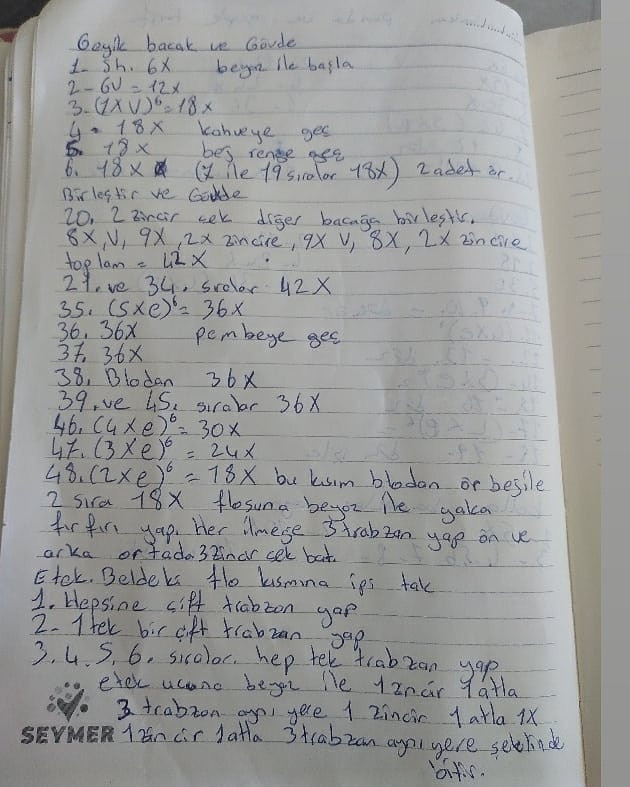 Geyik bacak ve Gövde
1- Sh. 6x beyaz ile başla
2- 6V = 12x
3- (1XV)⁶ = 18x
4- 18X kahveye geç
5. 18X bej renge geç
6. 18X (7 ile 19 sıralar 18X) 2 adet ör.
Birleştir ve Gövde
20. 2 zincir çek diğer bacağa birleştir.
8X, V, 9X, 2x zincire, 9X V, 8X, 2X zincire
toplam = 42X
21. ve 34. sıralar 42X
35. (5xe)⁶ = 36X
36. 36X pembeye geç
37. 36X
38. Blodan 36X
39. ve 45. sıralar 36X
46. (4xe)⁶ = 30X
47. (3Xe)⁶ = 24X
48. (2xe)⁶ = 18X bu kısım blodan ör bejile
2 sıra 18X flosuna beyaz ile yaka
fırfırı yap. Her ilmeğe 3 trabzan yap ön ve
arka ortada 3 zincir çek batı
Etek. Beldeki flo kısmına ipi tak
1. Hepsine çift trabzan yap
2- 1 tek bir çift trabzan yap
3. 4. 5. 6. sıralar. hep tek trabzan yap
etek ucuna beyaz ile 1 zncir 1 atla
3 trabzan aynı yere 1 zincir 1 atla 1X
SEYMER 1 zincir 1 atla 3 trabzan aynı yere şeklinde
bitir.